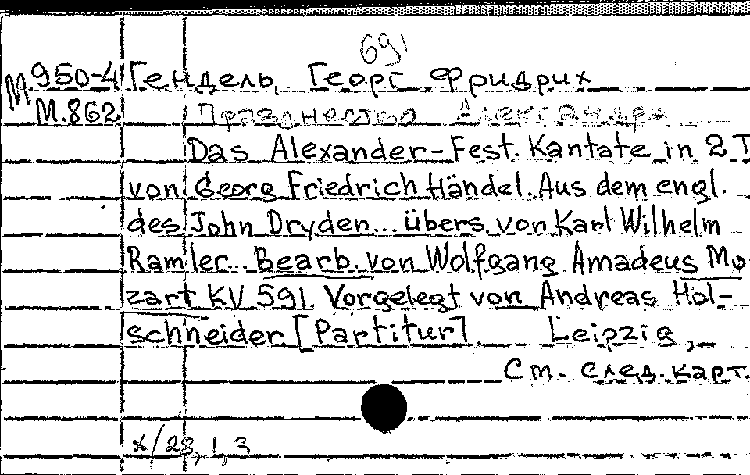 691
М 950-4 Гендель, Георг Фридрих
М.862 Празднество Александра
Das Alexander-Fest. Kantate in 2 T
von Georg Friedrich Händel. Aus dem engl.
des John Dryden... übers. von Karl Wilhelm
Ramler.. Bearb. von Wolfgang Amadeus Mo-
zart KV 591. Vorgelegt von Andreas Hol-
schneider [Partitur]. Leipzig,
См. след. карт.
x/28, 1, 3